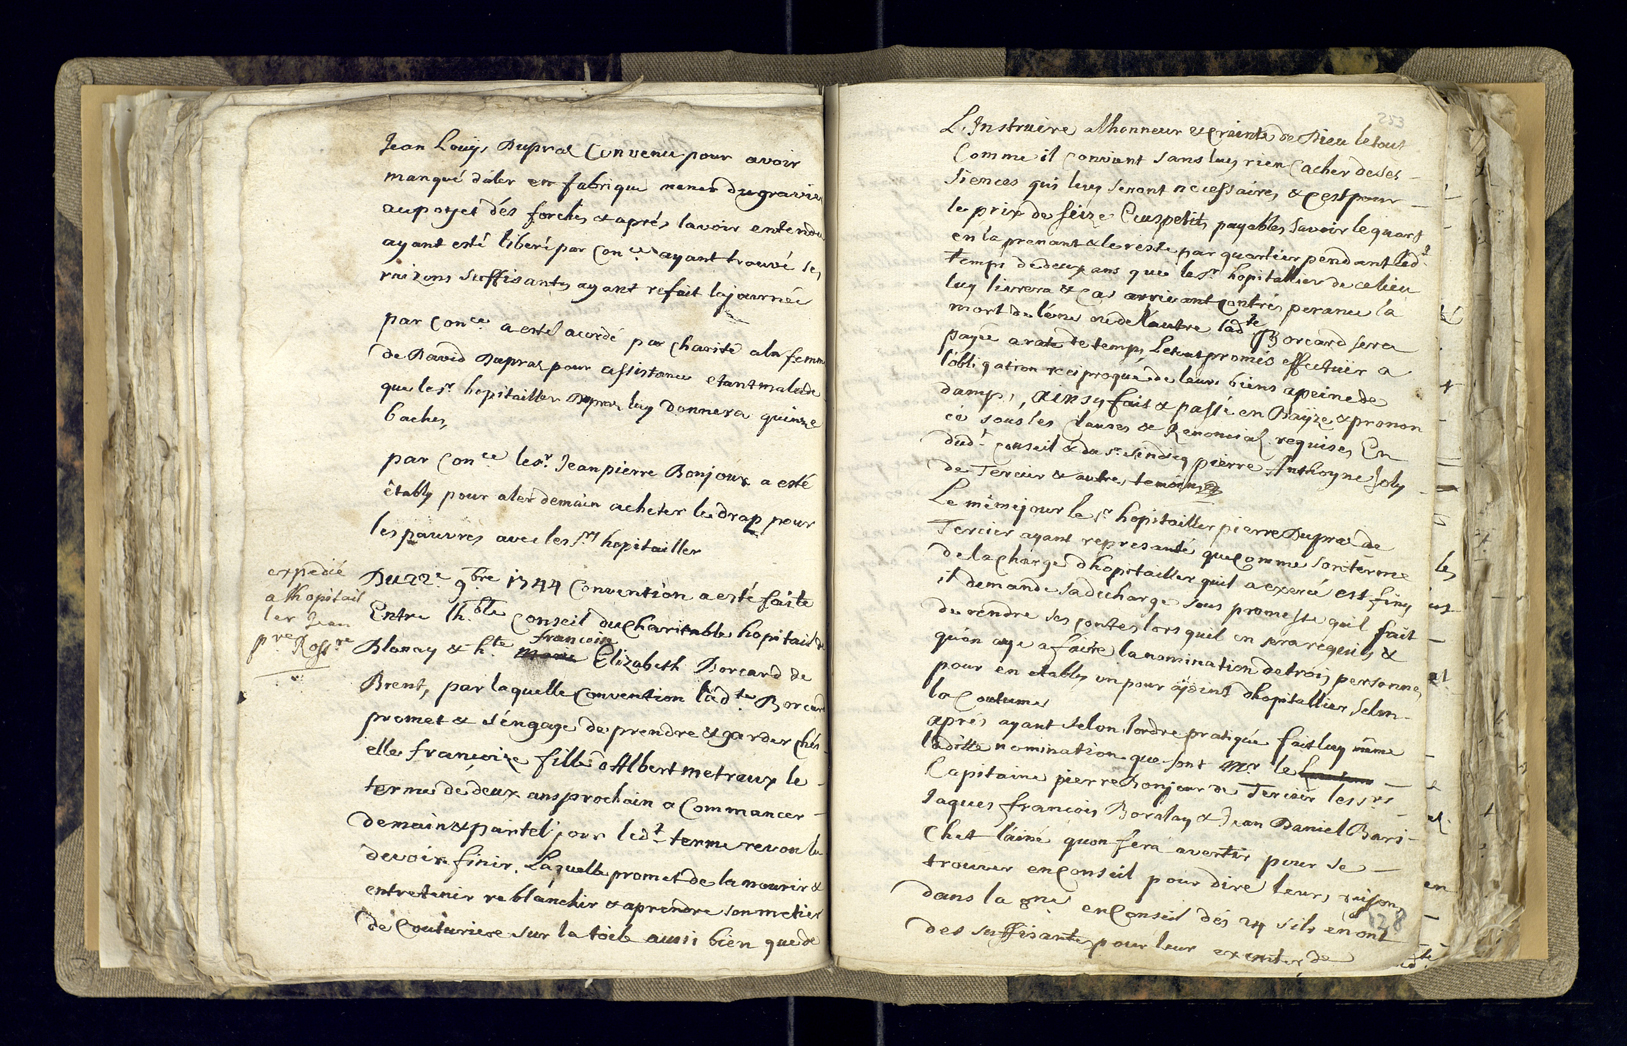 Jean Louÿs Dupraz Convenu pour avoir
manqué daler en fabrique mener du gravier
au poyet des forches & aprés lavoir entendu
ayant esté liberé par Con.ce ayant trouvé ses
raizons suffisantes ayant refait la journée
par Con.ce a esté acordé par charité a la femme
de David Dupraz pour assistance etant malade
que le s.r hopitaillier Dupraz luy donnera quinze
baches
par Con.ce le s.r Jean pierre Bonjour a esté
êtably pour aler demain acheter le drap pour
les pauvres avec les s.rs hopitailler
expedié
a lhopitail
ler Jean
p.re Ross.re
Du 22.e 9.bre 1744 Convention a esté faite
Entre lh.ble conseil du Charitable hopital de
Blonay & h.te francoise Elizabeth Borcard de
Brent, par laquelle Convention lad.te Borcard
promet & s'éngage de prendre & garder chés
elle françoize fille d'Albert metraux le
terme de deux ans prochain a Commancer
demain & pairtel jour led.t terme revolu
devoir finir. Laquelle promet de la nourir &
entretenir reblanchir & aprendre son metier
de Couturiere sur la toile aussi bien que de
253
L'Instruire a lhonneur & crainte de Dieu le tout
Comme il convient sans luy rien cacher de ses
siences qui luy seront necessaires & cest pour
le prix de seize Ecus petits payables savoir le quart
en la prenant & le reste par quartier pendant led.t
temps de deux ans que le s.r hopitallier de ce lieu
luy livrera & cas arrivant contre esperance la
mort de léune ou de lautre lad.te Borcard sera
payée a rate de temps Le tout promés effectuer a
l'obligation reciproque de leurs biens a peine de
damps, Ainsy fait & passé en Baÿze & pronon
cé sous les clauses de Renonciaõ. requises En
dud.t conseil & du s.r sindicq pierre Anthoyne Joly
de Tercier & autres temoins
Le même jour le s.r hopitailler pierre Dupraz de
Tercier ayant representé que Comme son terme
de la charge dhopitailler quil a exercé est finy
il demande sa decharge sous promesse quil fait
de rendre ses contes lors quil en sera requis &
quon aye a faire la nomination de trois personnes
pour en etably un pour ajoint dhopitallier selon
la Coutume
aprés ayant selon lordre pratiqué fait luy même
laditte nomination que sont m.r le
Capitaine pierre Bonjour de Tercier les s.rs
Jaques francois Boralay & Jean Daniel Bari-
chet lainé quon fera avertir pour se
trouver en Conseil pour dire leurs raisons
dans la g.ne en Conseil des 24 sils en ont
des suffisantes pour leur exenter de
128